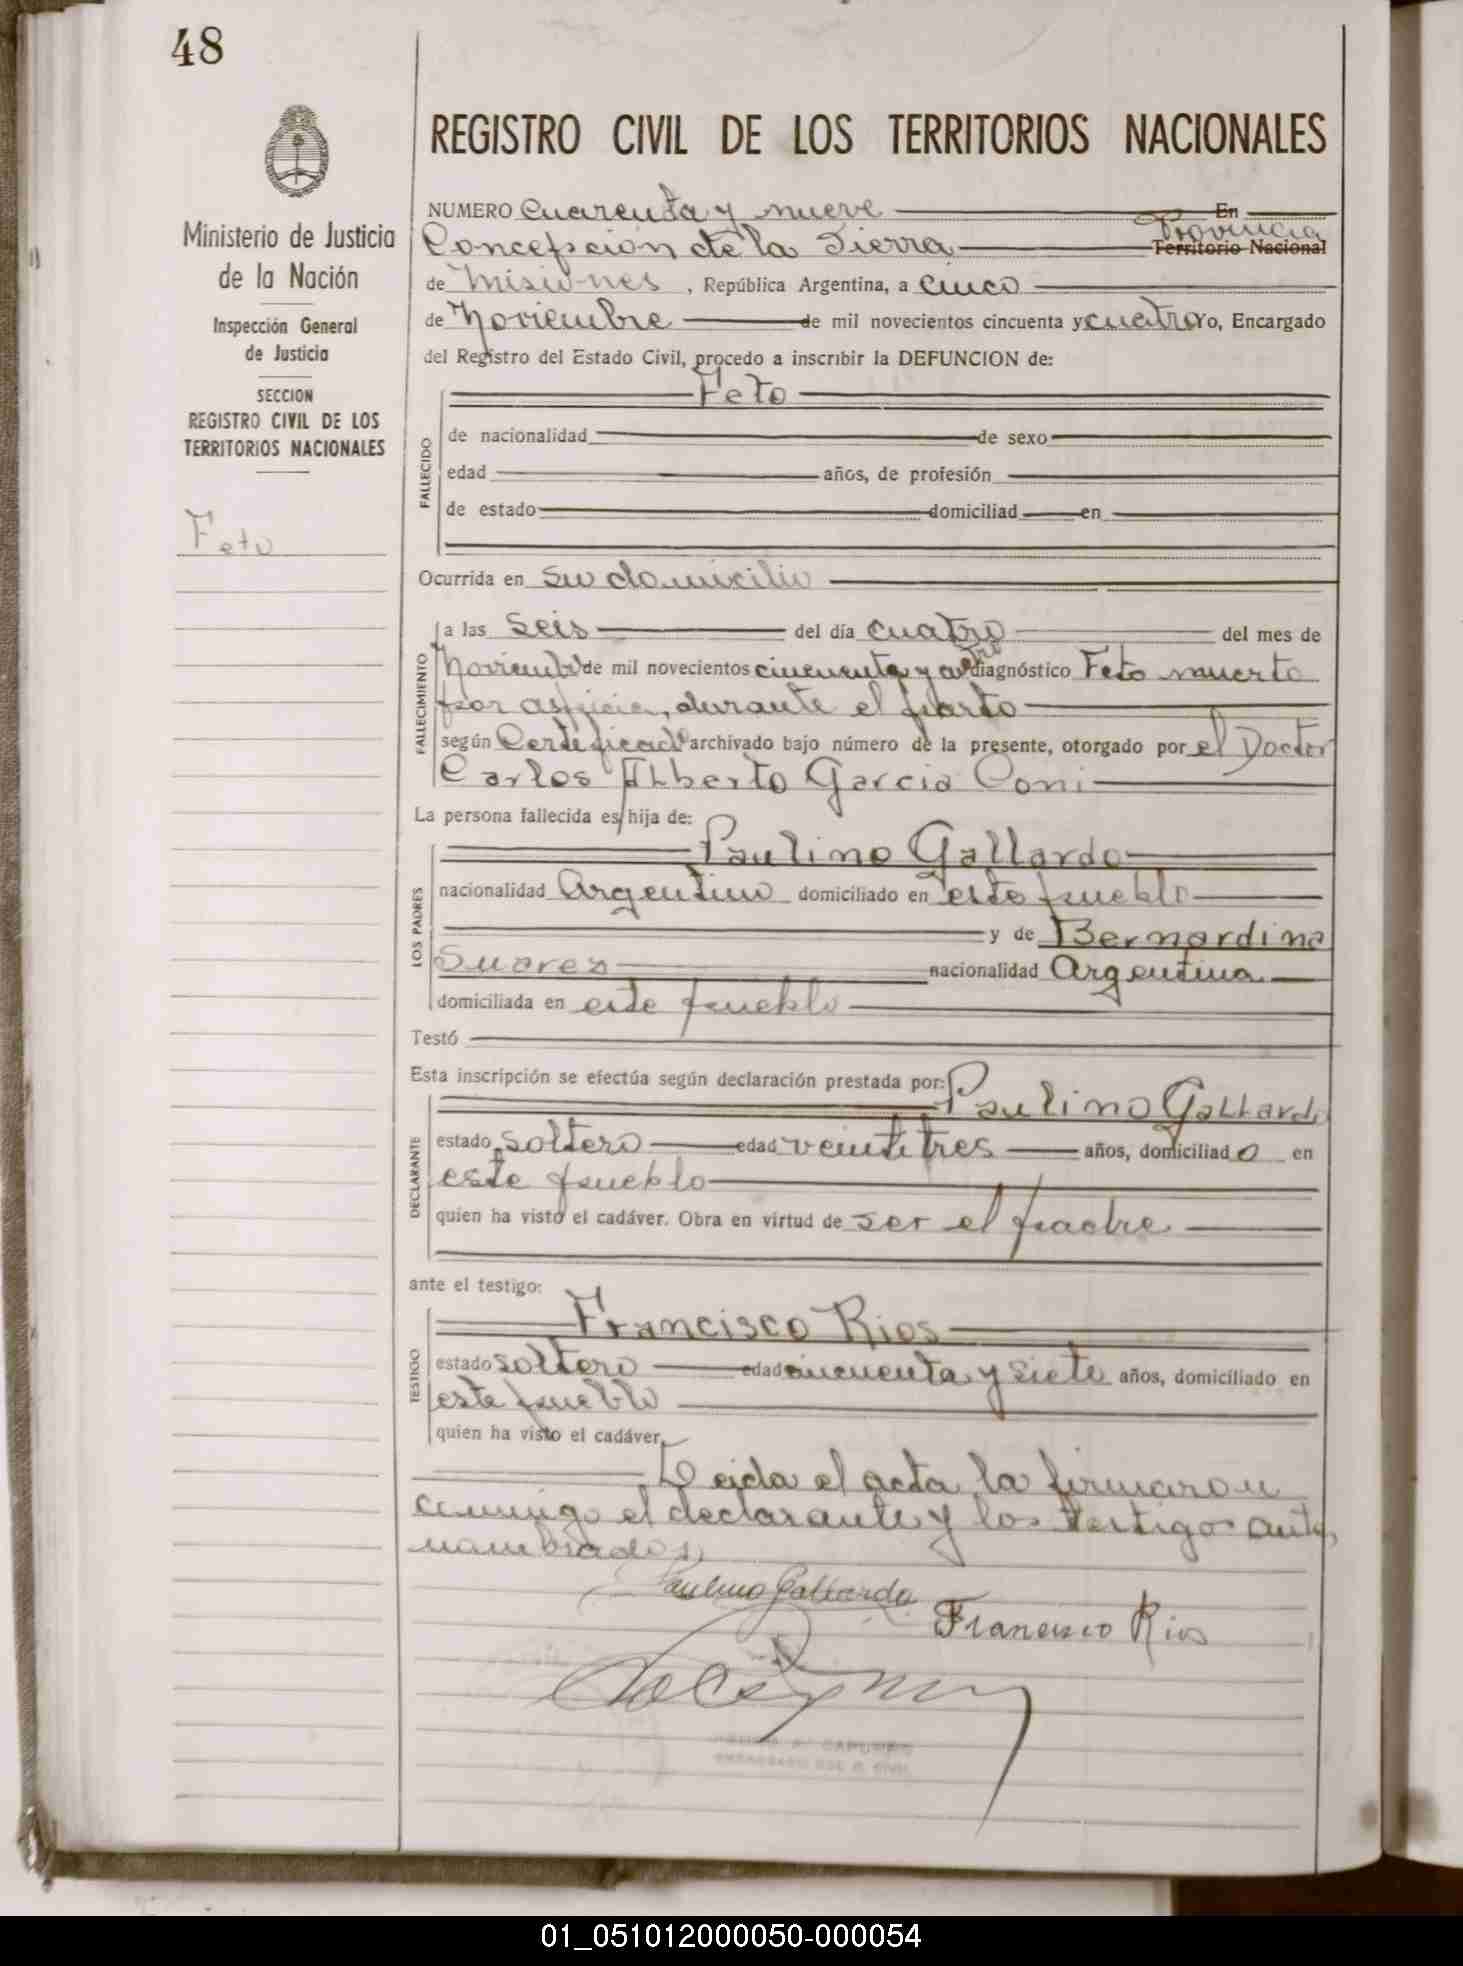 48
Ministerio de Justicia
de la Nación
Inspección General
de Justicia
SECCION
REGISTRO CIVIL DE LOS
TERRITORIOS NACIONALES
Feto
REGISTRO CIVIL DE LOS TERRITORIOS NACIONALES
NUMERO Cuarenta y nueve En
Provincia
Concepcion de la Sierra Territorio Nacional
de Misiones, República Argentina, a cinco
de Noviembre de mil novecientos cincuenta y cuatro Yo, Encargado
del Registro del Estado Civil, procedo a inscribir la DEFUNCION de:
Feto
FALLECIDO
de nacionalidad de sexo
edad años, de profesión
de estado domiciliad en
Ocurrida en su domicilio
FALLECIMIENTO
a las seis del día cuatro del mes de
Noviembre de mil novecientos cincuenta y cuatro diagnóstico Feto muerto
por asficia, durante el parto
según Certificado archivado bajo número de la presente, otorgado por el Doctor
Carlos Alberto Garcia Coni
La persona fallecida es hija de:
LOS PADRES
Paulino Gallardo
nacionalidad Argentino domiciliado en este pueblo
y de Bernardina
Suarez nacionalidad Argentina
domiciliada en este pueblo
Testó
Esta inscripción se efectúa según declaración prestada por:
DECLARANTE
Paulino Gallardo
estado soltero edad veintitres años, domiciliado en
este pueblo
quien ha visto el cadáver. Obra en virtud de ser el padre
ante el testigo:
TESTIGO
Francisco Rios
estado soltero edad cincuenta y siete años, domiciliado en
este pueblo
quien ha visto el cadáver,
Leida el acta la firmaron
conmigo el declarante y los testigos antes
nombrados
Paulino Gallardo
Francisco Rios
01_051012000050-000054